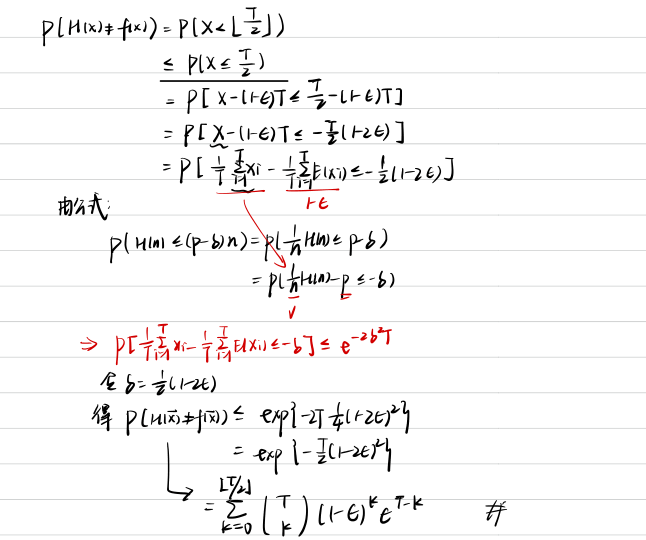 P(H(x)≠f(x)) = P(X<⌊T/2⌋)
≤ P(X≤T/2)
= P[X-(1-ϵ)T≤T/2-(1-ϵ)T]
= P[X-(1-ϵ)T≤-T/2(1-2ϵ)]
= P[1/T ∑_{i=1}^{T} Xi - 1/T ∑_{i=1}^{T} E(Xi) ≤ -1/2(1-2ϵ)]
1-ϵ
由公式:
P(H(n)≤(p-δ)n) = P(1/n H(n)≤p-δ)
= P(1/n H(n)-p≤-δ)
⇒ P[1/T ∑_{i=1}^{T} Xi - 1/T ∑_{i=1}^{T} E(Xi) ≤ -δ] ≤ e^{-2δ²T}
令 δ=1/2(1-2ϵ)
得 P(H(x)≠f(x)) ≤ exp{-2T 1/4(1-2ϵ)²}
= exp{-T/2(1-2ϵ)²}
= ∑_{k=0}^{⌊T/2⌋} (T k) (1-ϵ)^k ϵ^{T-k} #